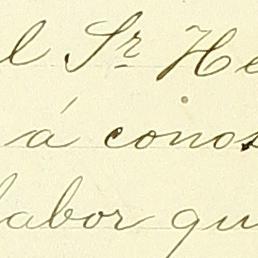 l Sr He
á conos
labor qu